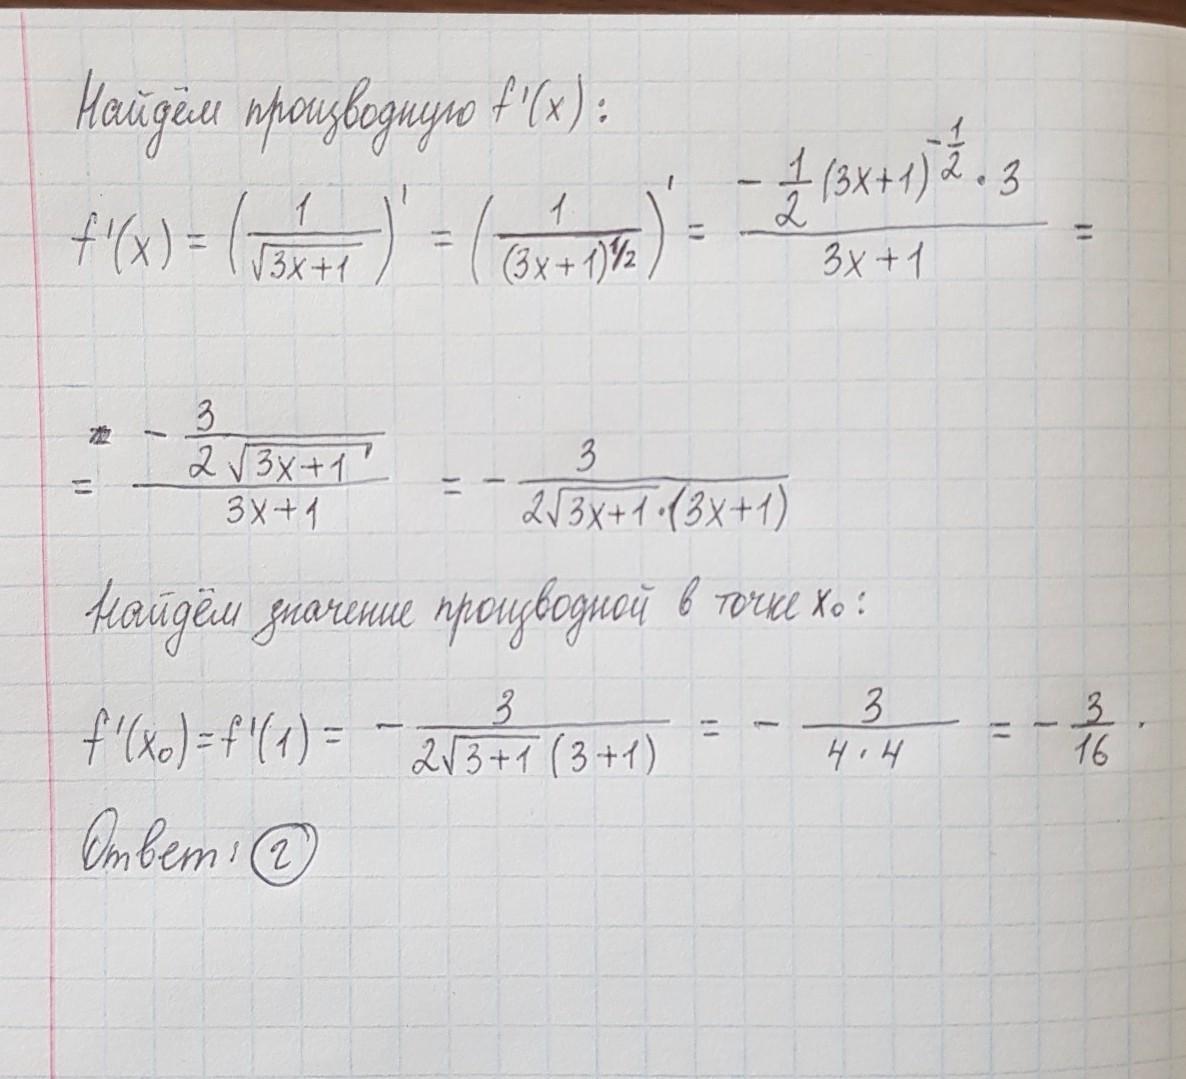 Найдём производную f'(x):
f'(x) = (1/√(3x+1))' = (1/(3x+1)^1/2)' = (-1/2(3x+1)^(-1/2)·3)/(3x+1) =
= (-3/(2√(3x+1)))/(3x+1) = -3/(2√(3x+1)·(3x+1))
Найдём значение производной в точке x₀:
f'(x₀)=f'(1)= -3/(2√(3+1)(3+1)) = -3/(4·4) = -3/16.
Ответ: г